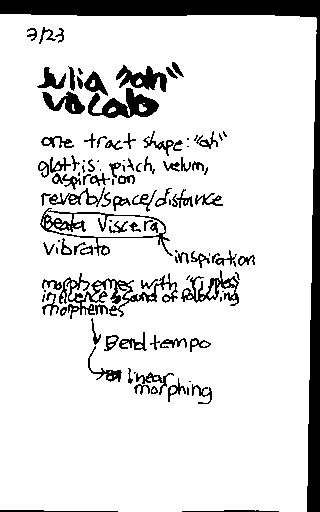 7/23
Julia "ah"
vocab
one tract shape: "ah"
glottis: pitch, velum,
aspiration
reverb/space/distance
Beata Viscera
inspiration
vibrato
morphemes with "ripples"
influence sound of following
morphemes
Bend tempo
linear
morphing